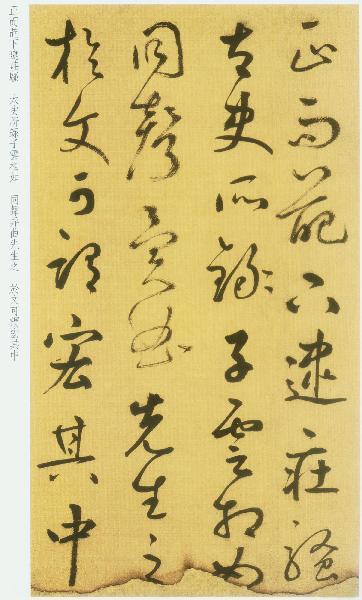 正而葩下逮莊騷
太史所錄子雲相如
同聲異曲先生之
於文可謂宏其中
正而葩下逮莊騷　太史所錄子雲相如　同聲異曲先生之　於文可謂宏其中